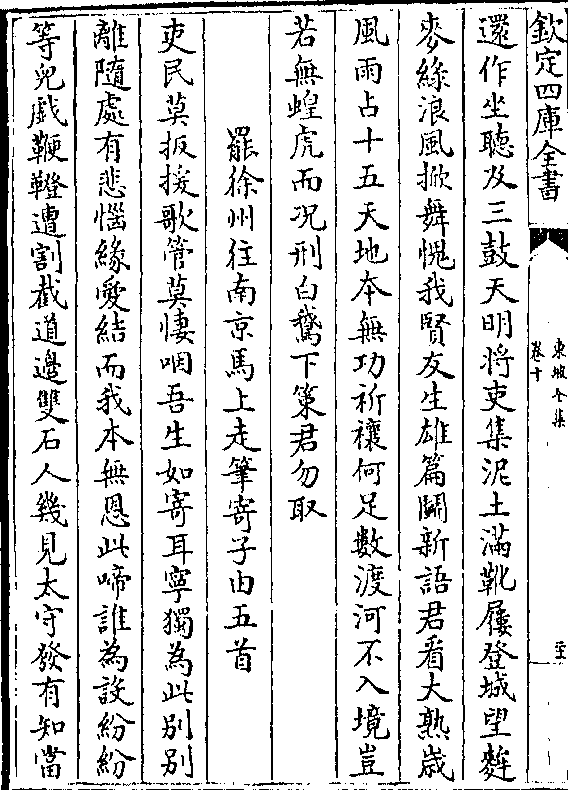 欽定四庫全書
東坡全集
卷十
還作坐聽及三鼓天明將吏集泥土滿靴屨登城望麰
麥綠浪風掀舞愧我賢友生雄篇鬭新語君看大熟歲
風雨占十五天地本無功祈禳何足數渡河不入境豈
若無蝗虎而况刑白鵞下策君勿取
罷徐州往南京馬上走筆寄子由五首
吏民莫扳援歌管莫悽咽吾生如寄耳寧獨為此別別
離隨處有悲惱緣愛結而我本無恩此啼誰為設紛紛
等兒戲鞭鐙遭割截道邊雙石人幾見太守發有知當